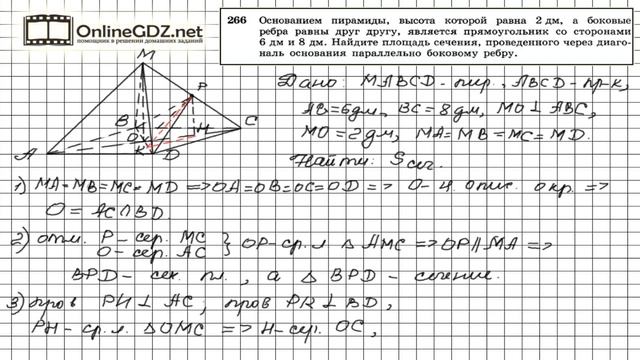 OnlineGDZ.net
помощник в решении домашних заданий
266 Основанием пирамиды, высота которой равна 2 дм, а боковые
ребра равны друг другу, является прямоугольник со сторонами
6 дм и 8 дм. Найдите площадь сечения, проведенного через диаго-
наль основания параллельно боковому ребру.
M
P
B
H
C
O
A
K
D
Дано: MABCD – пир., ABCD – пр-к,
AB=6дм, BC=8дм, MO⊥ABC,
MO=2дм, MA=MB=MC=MD.
Найти: Sсеч.
1) MA=MB=MC=MD => OA=OB=OC=OD => O-ц. опис. окр =>
O = AC∩BD.
2) отм. P – сер. MC
O – сер. AC } OP-ср.л △AMC => OP∥MA =>
BPD – сек. пл., а △BPD – сечение.
3) пров PH⊥AC; пров PK⊥BD,
PH – ср.л. △OMC => H-сер. OC,